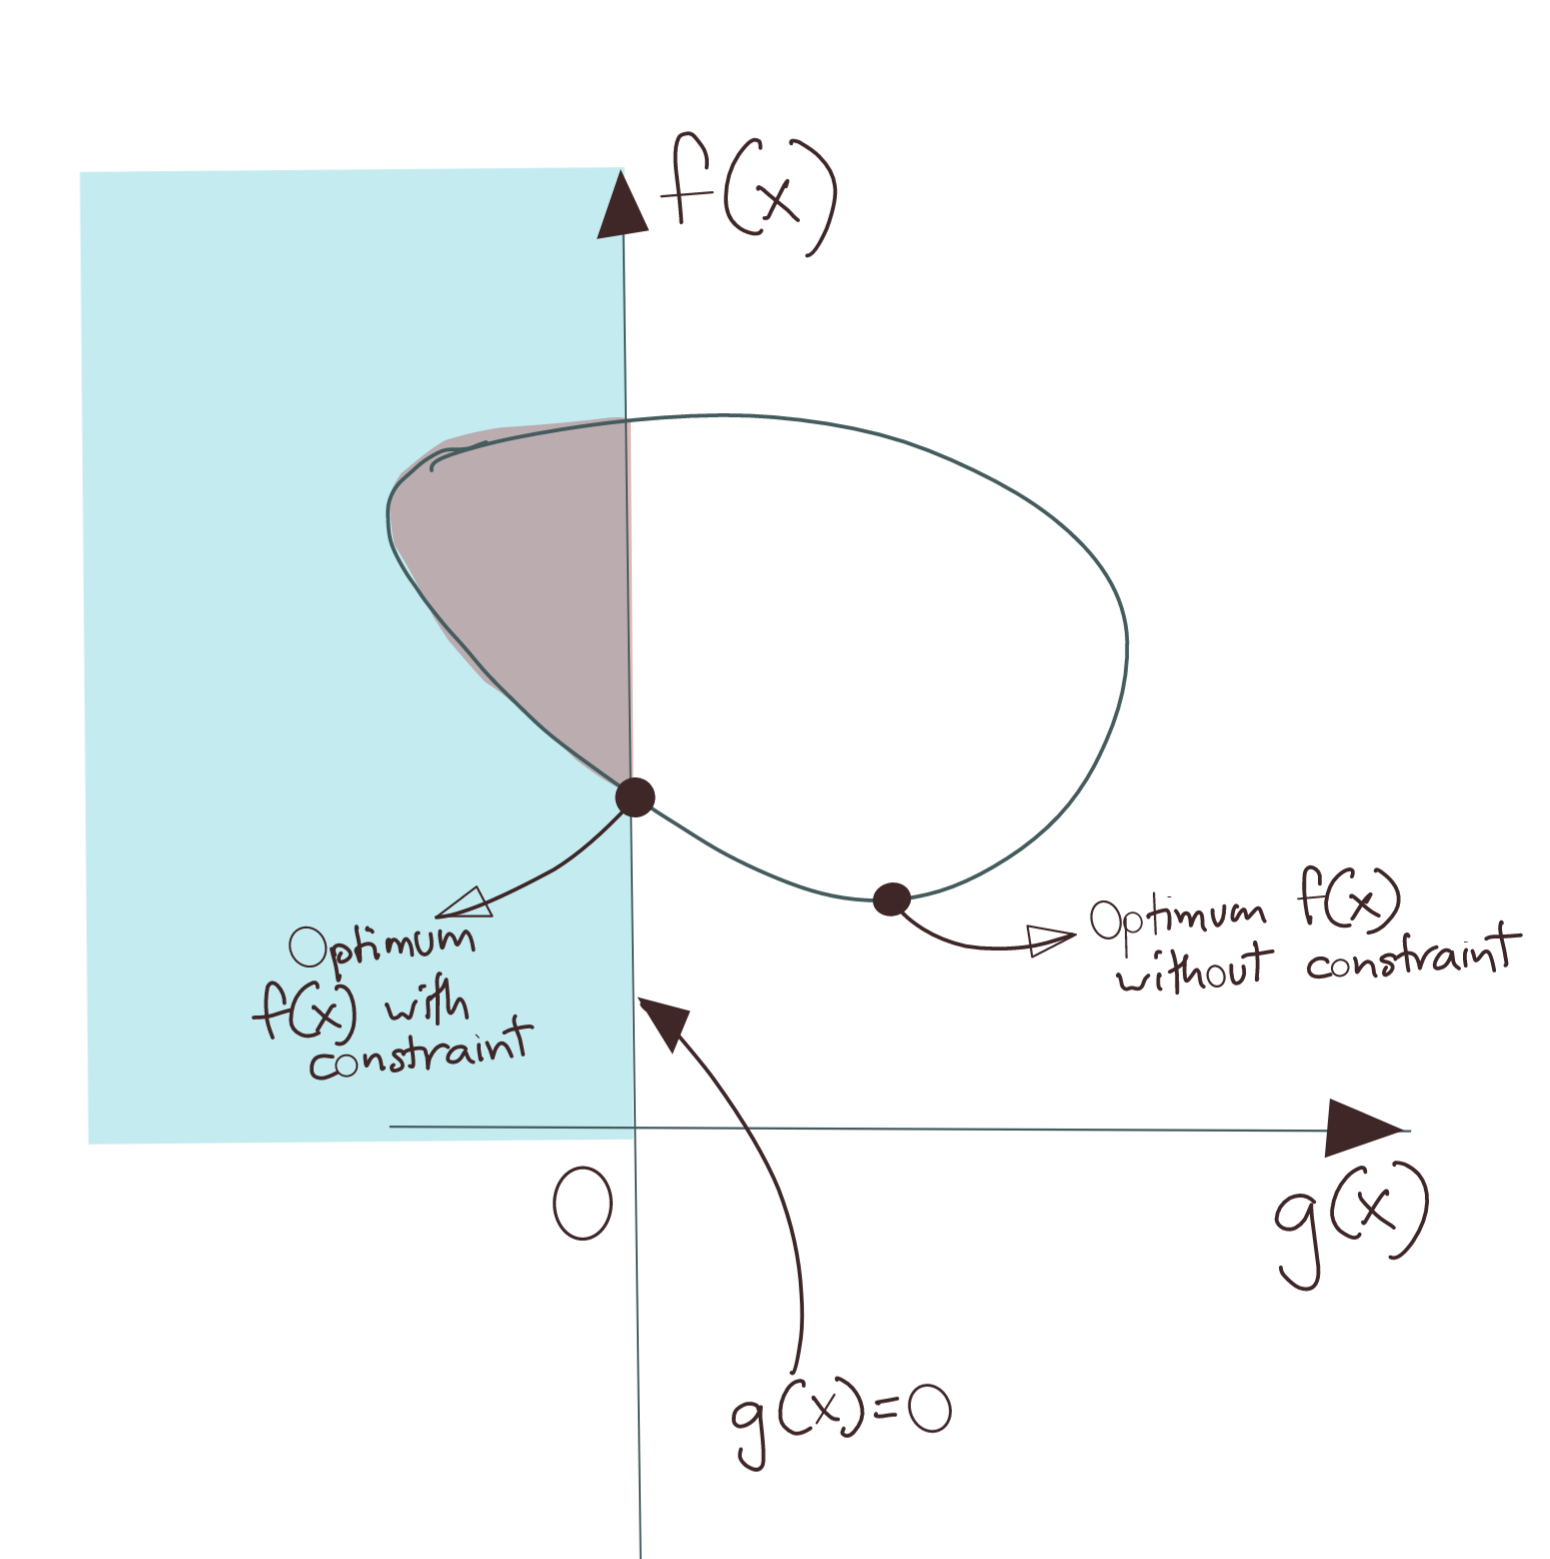 f(x)
Optimum f(x)
without constraint
Optimum
f(x) with
constraint
0
g(x)
g(x)=0